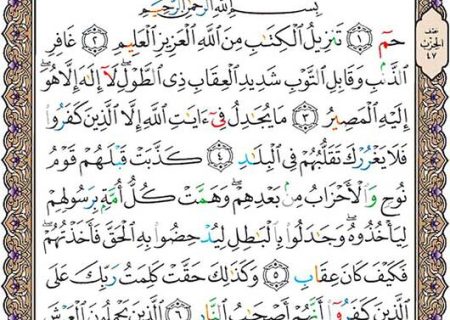 بِسْمِ اللَّهِ الرَّحْمَٰنِ الرَّحِيمِ
حمٓ ۝١ تَنزِيلُ الْكِتَٰبِ مِنَ اللَّهِ الْعَزِيزِ الْعَلِيمِ ۝٢ غَافِرِ
الذَّنۢبِ وَقَابِلِ التَّوْبِ شَدِيدِ الْعِقَابِ ذِى الطَّوْلِ ۖ لَآ إِلَٰهَ إِلَّا هُوَ ۖ
إِلَيْهِ الْمَصِيرُ ۝٣ مَا يُجَٰدِلُ فِىٓ ءَايَٰتِ اللَّهِ إِلَّا الَّذِينَ كَفَرُوا۟
فَلَا يَغْرُرْكَ تَقَلُّبُهُمْ فِى الْبِلَٰدِ ۝٤ كَذَّبَتْ قَبْلَهُمْ قَوْمُ
نُوحٍ وَالْأَحْزَابُ مِنۢ بَعْدِهِمْ ۖ وَهَمَّتْ كُلُّ أُمَّةٍۭ بِرَسُولِهِمْ
لِيَأْخُذُوهُ ۖ وَجَٰدَلُوا۟ بِالْبَٰطِلِ لِيُدْحِضُوا۟ بِهِ الْحَقَّ فَأَخَذْتُهُمْ ۖ
فَكَيْفَ كَانَ عِقَابِ ۝٥ وَكَذَٰلِكَ حَقَّتْ كَلِمَتُ رَبِّكَ عَلَى
الَّذِينَ كَفَرُوٓا۟ أَنَّهُمْ أَصْحَٰبُ النَّارِ ۝٦ الَّذِينَ يَحْمِلُونَ الْعَرْشَ
الحزب
٤٧